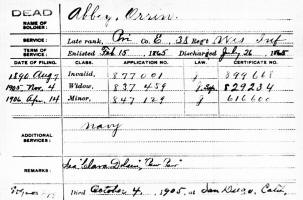 DEAD
NAME OF SOLDIER: Abbey, Orrin.
SERVICE: Late rank, Pri Co. E, 38 Reg't Wis Inf
TERM OF SERVICE: Enlisted Feb 15, 1865 Discharged July 26, 1865
DATE OF FILING. CLASS. APPLICATION NO. LAW. CERTIFICATE NO.
1890 Aug 7 Invalid, 877001 j 899668
1905 Nov. 4 Widow, 837459 829234
1906 Apr. 14 Minor, 847129 j 616600
ADDITIONAL SERVICES: Navy
REMARKS: "Clara
Died October 4, 1905, at San Diego, Calif.